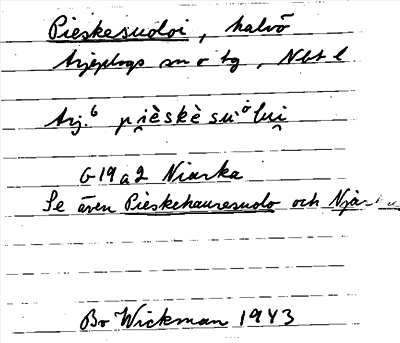 Pieskesudoi, halvö
Arjeplogs sn o tg, Nbt l
Arj.⁶ pi̯èskè su͏̊lui̯
G 19 a 2 Niarka
Se även Pieskehauresudo och
Bo Wickman 1943